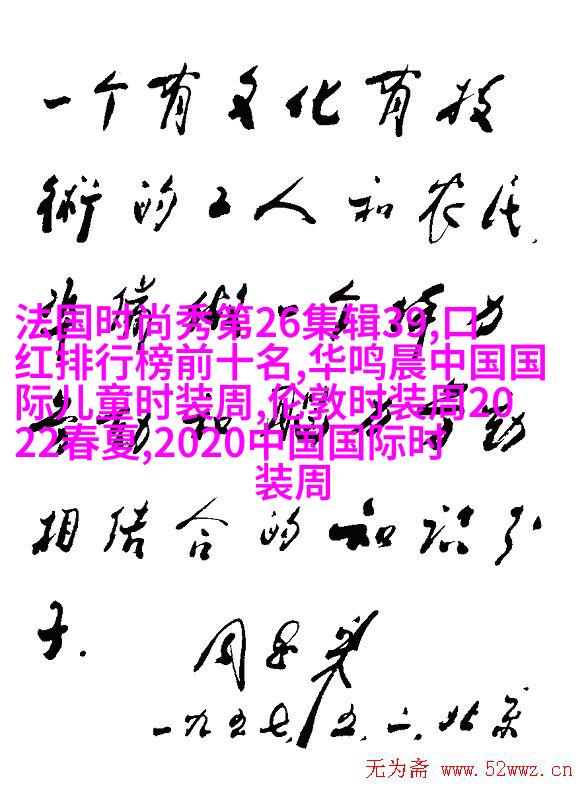 一个有文化有技
術的工人和农民,
法国时尚秀第26集辑39,口
红排行榜前十名,华鸣晨中国国
际儿童时装周,伦敦时装周20
22春夏,2020中国国际时
装周
劳动和劳动
相结合的知识分
子.
周恩来
一九五七,五,一,北京
无为斋 www.52wwz.cn